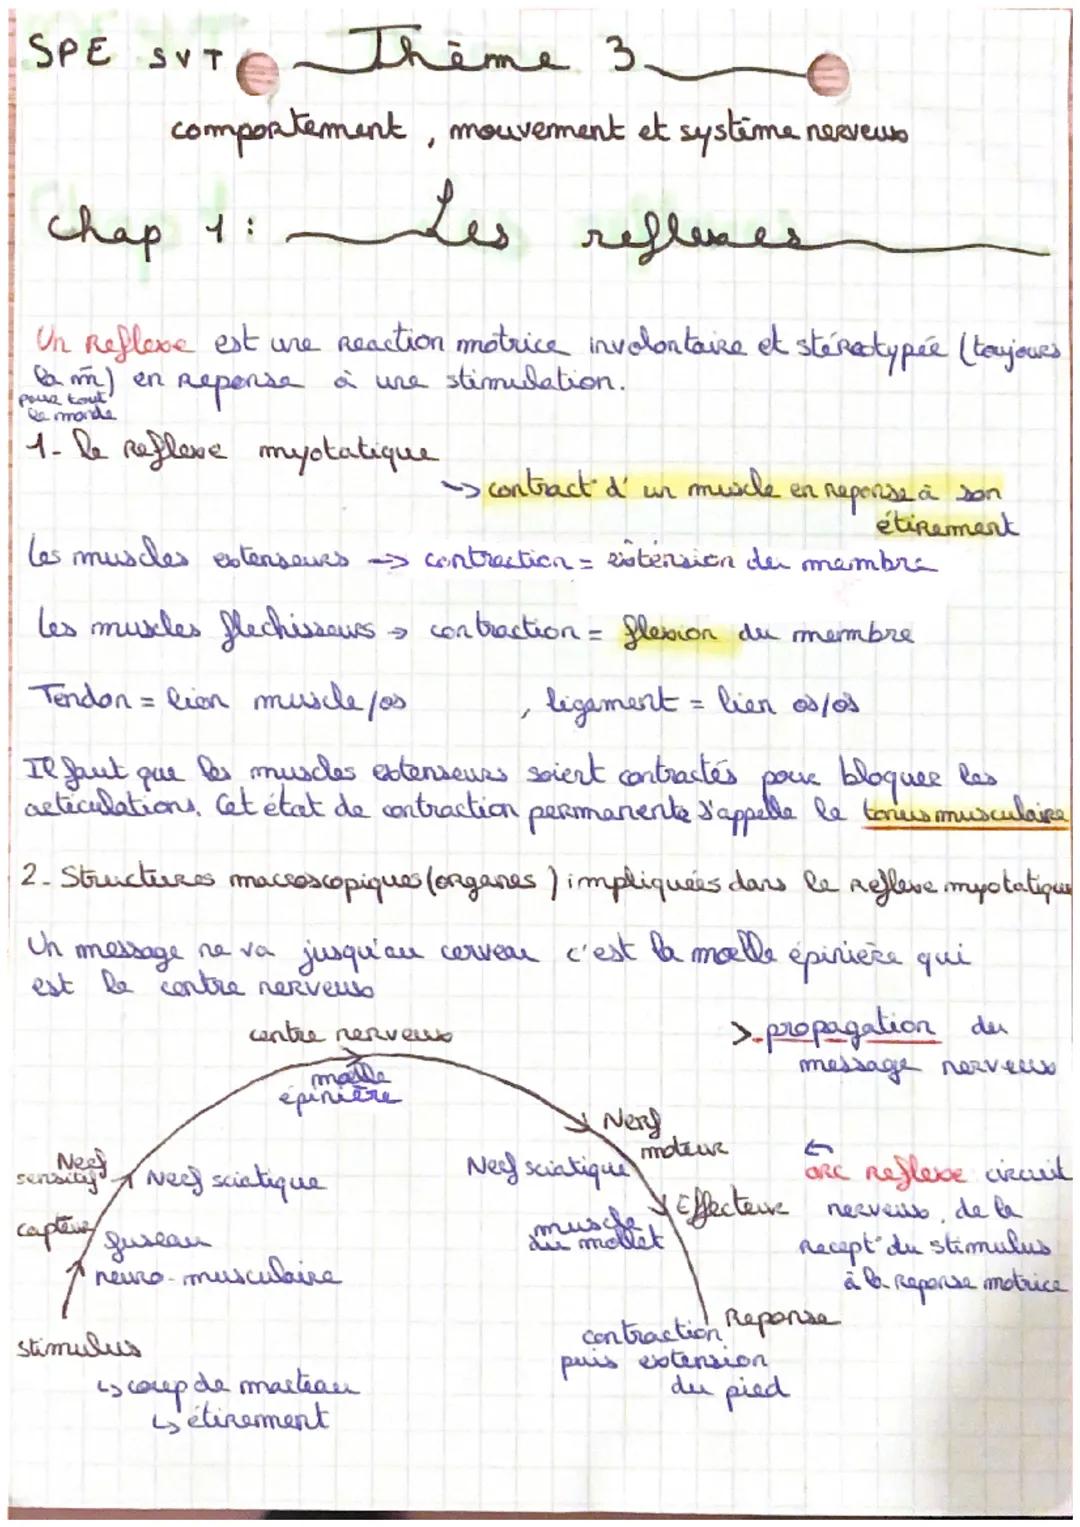 SPE SVT Thème 3
comportement, mouvement et système nerveux
chap 1 : Les reflexes
Un Reflexe est une reaction motrice involontaire et stéréotypée (toujours
la m̂) en reponse à une stimulation.
pour tout
le monde
1- le reflexe myotatique
→ contract° d' un muscle en reponse à son
étirement
les muscles extenseurs → contraction = extension du membre
les muscles flechisseurs → contraction = flexion du membre
Tendon = lien muscle/os , ligament = lien os/os
Il faut que les muscles extenseurs soient contractés pour bloquer les
articulations. Cet état de contraction permanente s'appelle le tonus musculaire
2- Structures macroscopiques (organes) impliquées dans le reflexe myotatique
Un message ne va jusqu'au cerveau c'est la moelle épinière qui
est le centre nerveux
centre nerveux
>-propagation du
message nerveux
moelle
épinière
Nerf
moteur
Nerf
sensitif
Nerf sciatique
Nerf sciatique
←
arc reflexe circuit
nerveux, de la
recept° du stimulus
à la reponse motrice
capteur
fuseau
neuro-musculaire
Effecteur
muscle
du mollet
stimulus
↳ coup de marteau
↳ étirement
Reponse
contraction
puis extension
du pied